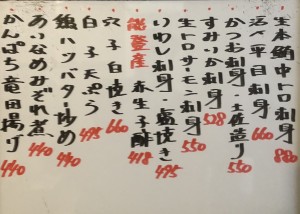 生本鮪中トロ刺身 880
活〆平目刺身 660
かつお刺身 土佐造り 550
すみいか刺身 528
生トロサーモン刺身 550
いわし刺身・塩焼き 495
能登産 赤生子酢 418
穴子白焼き 660
白子天ぷら 495
蛤ハツバター炒め 440
あいなめみぞれ煮 440
かんぱち竜田揚げ 440